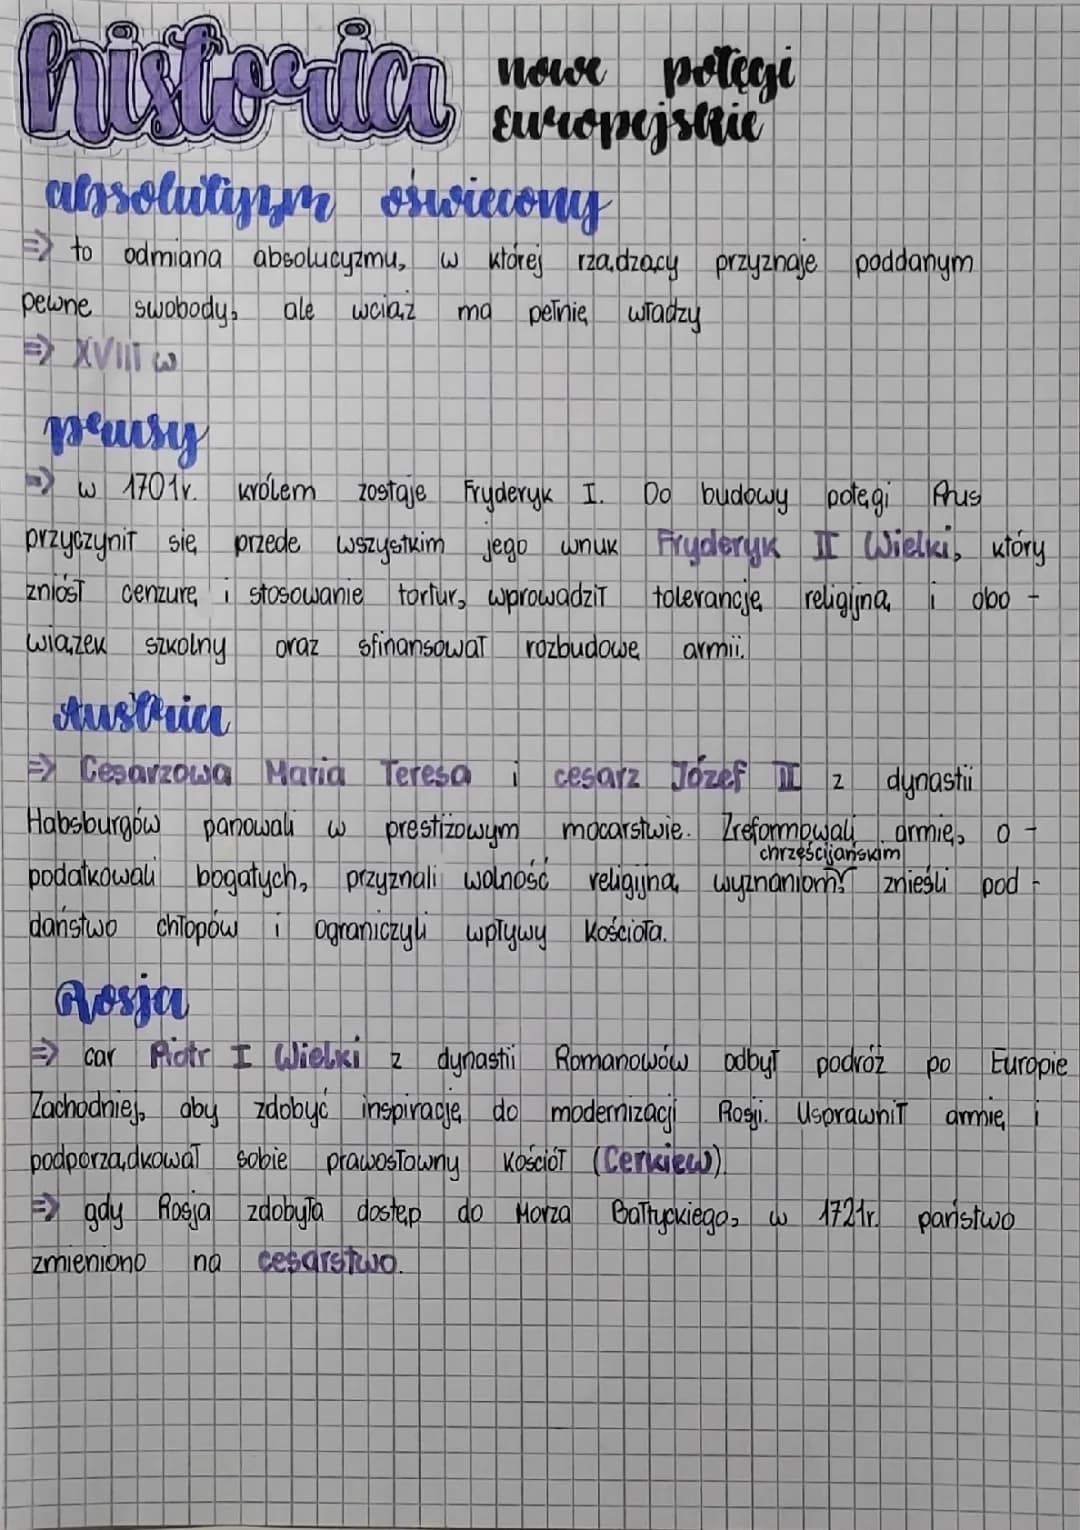 historia nowe potęgi
Europejskie
absolutyzm oświecony
=> to odmiana absolucyzmu, w której rządzący przyznaje poddanym
pewne swobody, ale wciąż ma pełnię władzy
=> XVIII w
prusy
=> w 1701r. królem zostaje Fryderyk I. Do budowy potęgi Prus
przyczynił się przede wszystkim jego wnuk Fryderyk II Wielki, który
zniósł cenzurę i stosowanie tortur, wprowadził tolerancję religijną i obo -
wiązek szkolny oraz sfinansował rozbudowę armii.
Austria
=> Cesarzowa Maria Teresa i cesarz Józef II z dynastii
Habsburgów panowali w prestiżowym mocarstwie. Zreformowali armię, o -
chrześcijańskim
podatkowali bogatych, przyznali wolność religijną wyznaniom, znieśli pod -
daństwo chłopów i ograniczyli wpływy Kościoła.
Rosja
=> car Piotr I Wielki z dynastii Romanowów odbył podróż po Europie
Zachodniej, aby zdobyć inspirację do modernizacji Rosji. Usprawnił armię i
podporządkował sobie prawosławny Kościół (Cerkiew).
=> gdy Rosja zdobyła dostęp do Morza Bałtyckiego, w 1721r. państwo
zmieniono na cesarstwo.